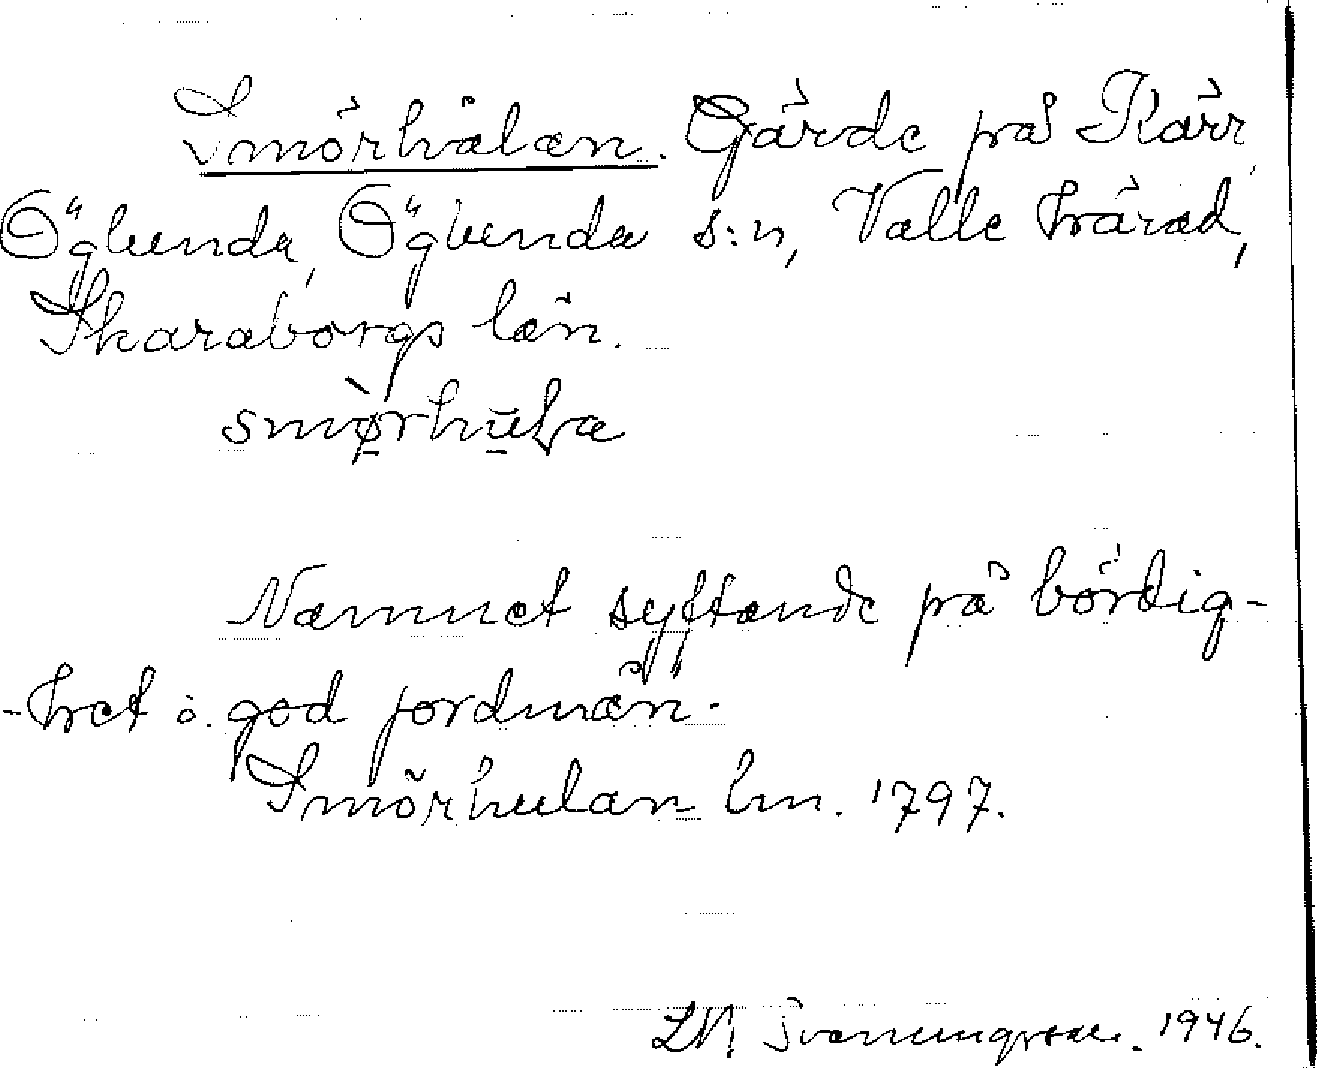 Smörhålan. Gärde på Kärr,
Öglunda, Öglunda s:n, Valle härad,
Skaraborgs län.
Namnet syftande på bördig-
-het o. god jordmån.
Smörhulan lm. 1797.
1946.